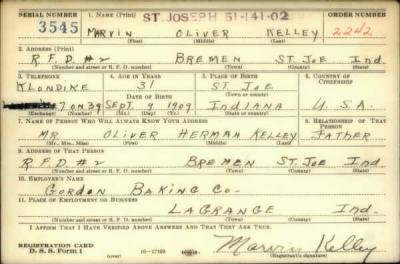 SERIAL NUMBER 1. NAME (Print) ST. JOSEPH 31-141-02 ORDER NUMBER
3545 MARVIN OLIVER KELLEY 2212
(First) (Middle) (Last)
2. ADDRESS (Print)
R.F.D. #2 BREMEN ST. JOE Ind.
(Number and street or R. F. D. number) (Town) (County) (State)
3. TELEPHONE 4. AGE IN YEARS 5. PLACE OF BIRTH 6. COUNTRY OF CITIZENSHIP
KLONDIKE 31 ST. JOE
DATE OF BIRTH
7 ON 39 SEPT. 9 1909 INDIANA U.S.A.
(Exchange) (Number) (Mo.) (Day) (Yr.) (State or country)
7. NAME OF PERSON WHO WILL ALWAYS KNOW YOUR ADDRESS 8. RELATIONSHIP OF THAT PERSON
MR. OLIVER HERMAN KELLEY FATHER
(Mr., Mrs., Miss) (First) (Middle) (Last)
9. ADDRESS OF THAT PERSON
R.F.D. #2 BREMEN ST. JOE Ind.
(Number and street or R. F. D. number) (Town) (County) (State)
10. EMPLOYER'S NAME
GORDON BAKING CO-
11. PLACE OF EMPLOYMENT OR BUSINESS
LAGRANGE Ind.
(Number and street or R. F. D. number) (Town) (County) (State)
I AFFIRM THAT I HAVE VERIFIED ABOVE ANSWERS AND THAT THEY ARE TRUE.
REGISTRATION CARD
D. S. S. Form 1 (over) 16-17105 Marvin Kelley
(Registrant's signature)